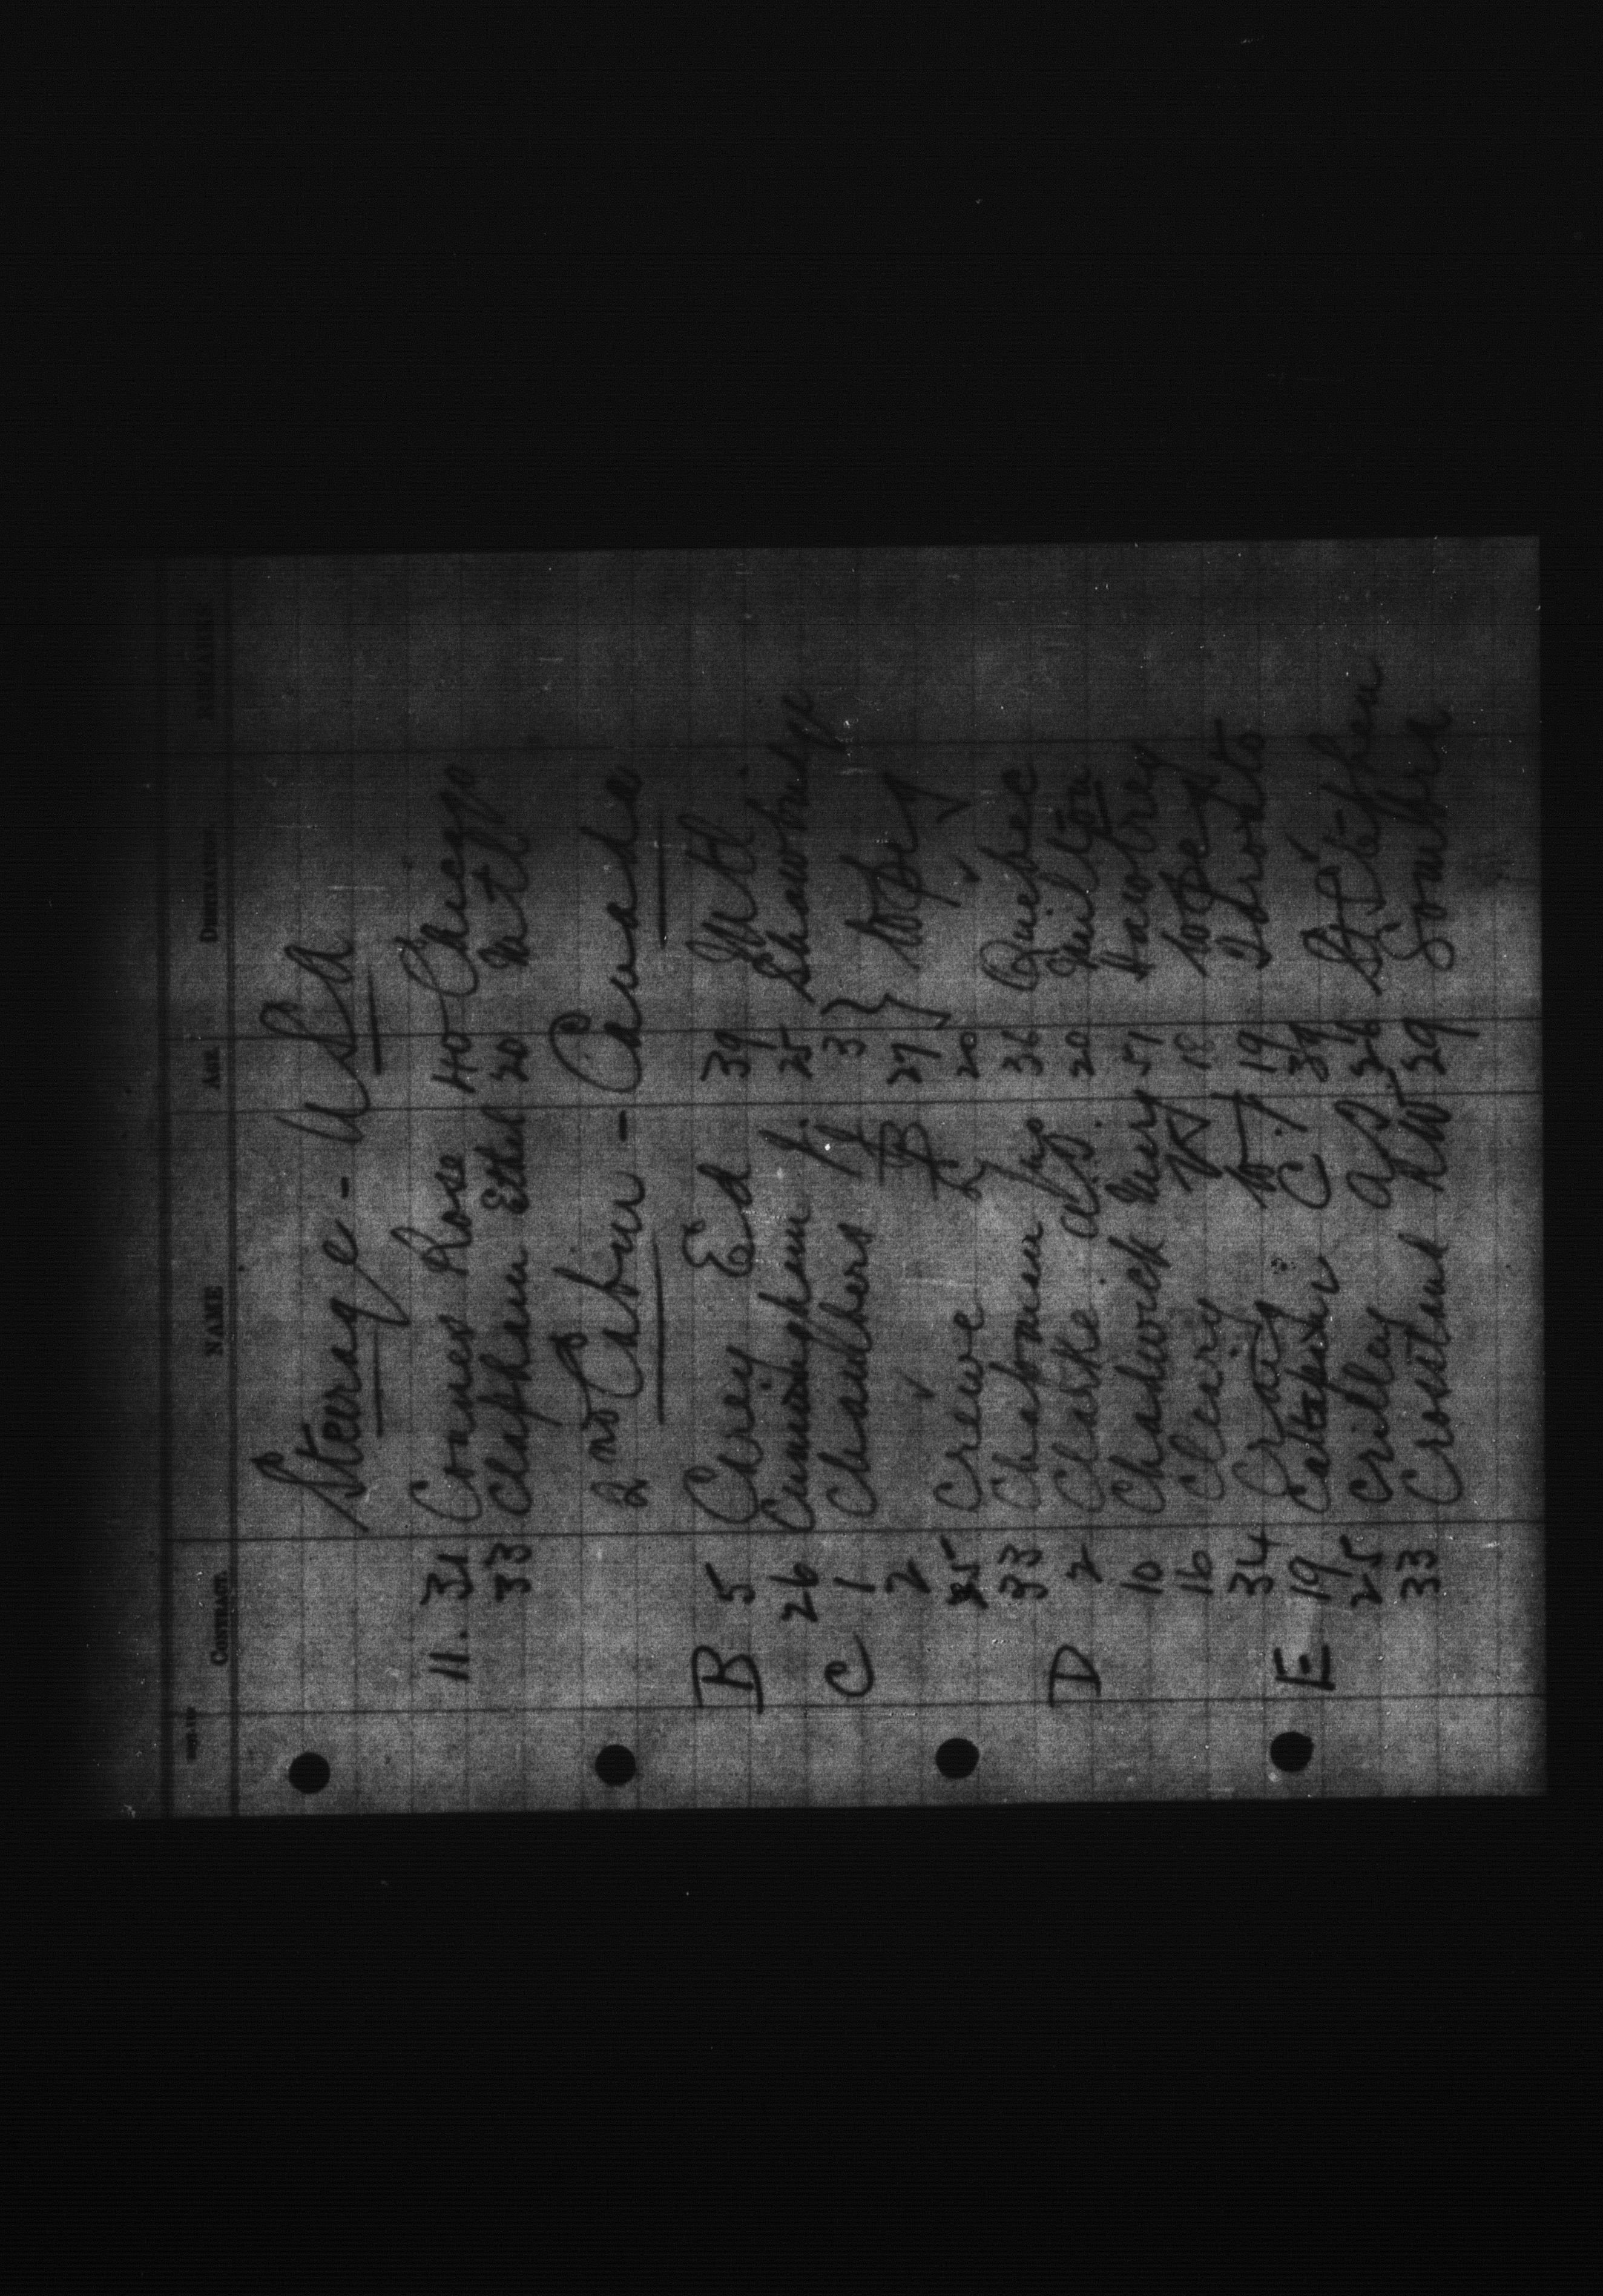 CONTRACT. NAME AGE DESTINATION. REMARKS
Steerage - USA
11. 31 Connes Rose 40 Chicago
33 Clapham Ethel 20 Mtl
2nd Cabin - Canada
B 5 Carey Ed 39 Mtl.
26 Cunningham J. 25 Shawbridge
C 1 Chambers 3 } Wpg
2 ✓ B 27
25 Crewe 20 ✓
33 Chapman Jas 36 Quebec
D 2 Clarke 20 Milton
10 Chadwick Mary 51 Hawtrey
16 Cleary 18 Wpeg
34 Craig 19 Toronto
E 19 C. 39
25 Crilley 26 St Stephen
33 Crosstand AW 29 Sombra